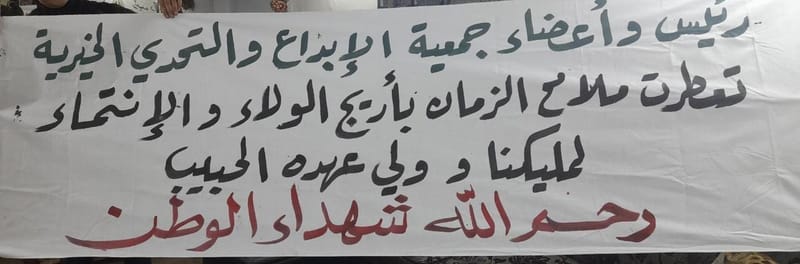 رئيس وأعضاء جمعية الإبداع والتحدي الخيرية
تعطرت ملامح الزمان بأريج الولاء والإنتماء
لمليكنا و ولي عهده الحبيب
رحم الله شهداء الوطن